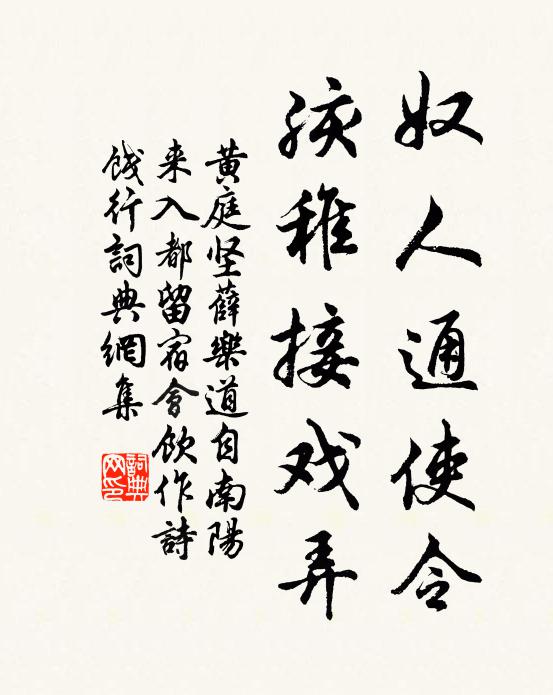 奴人通使令
孩稚接戏弄
黄庭坚薛樂道自南陽
来入都留宿會飲作詩
餞行詞典網集
詞典
网印